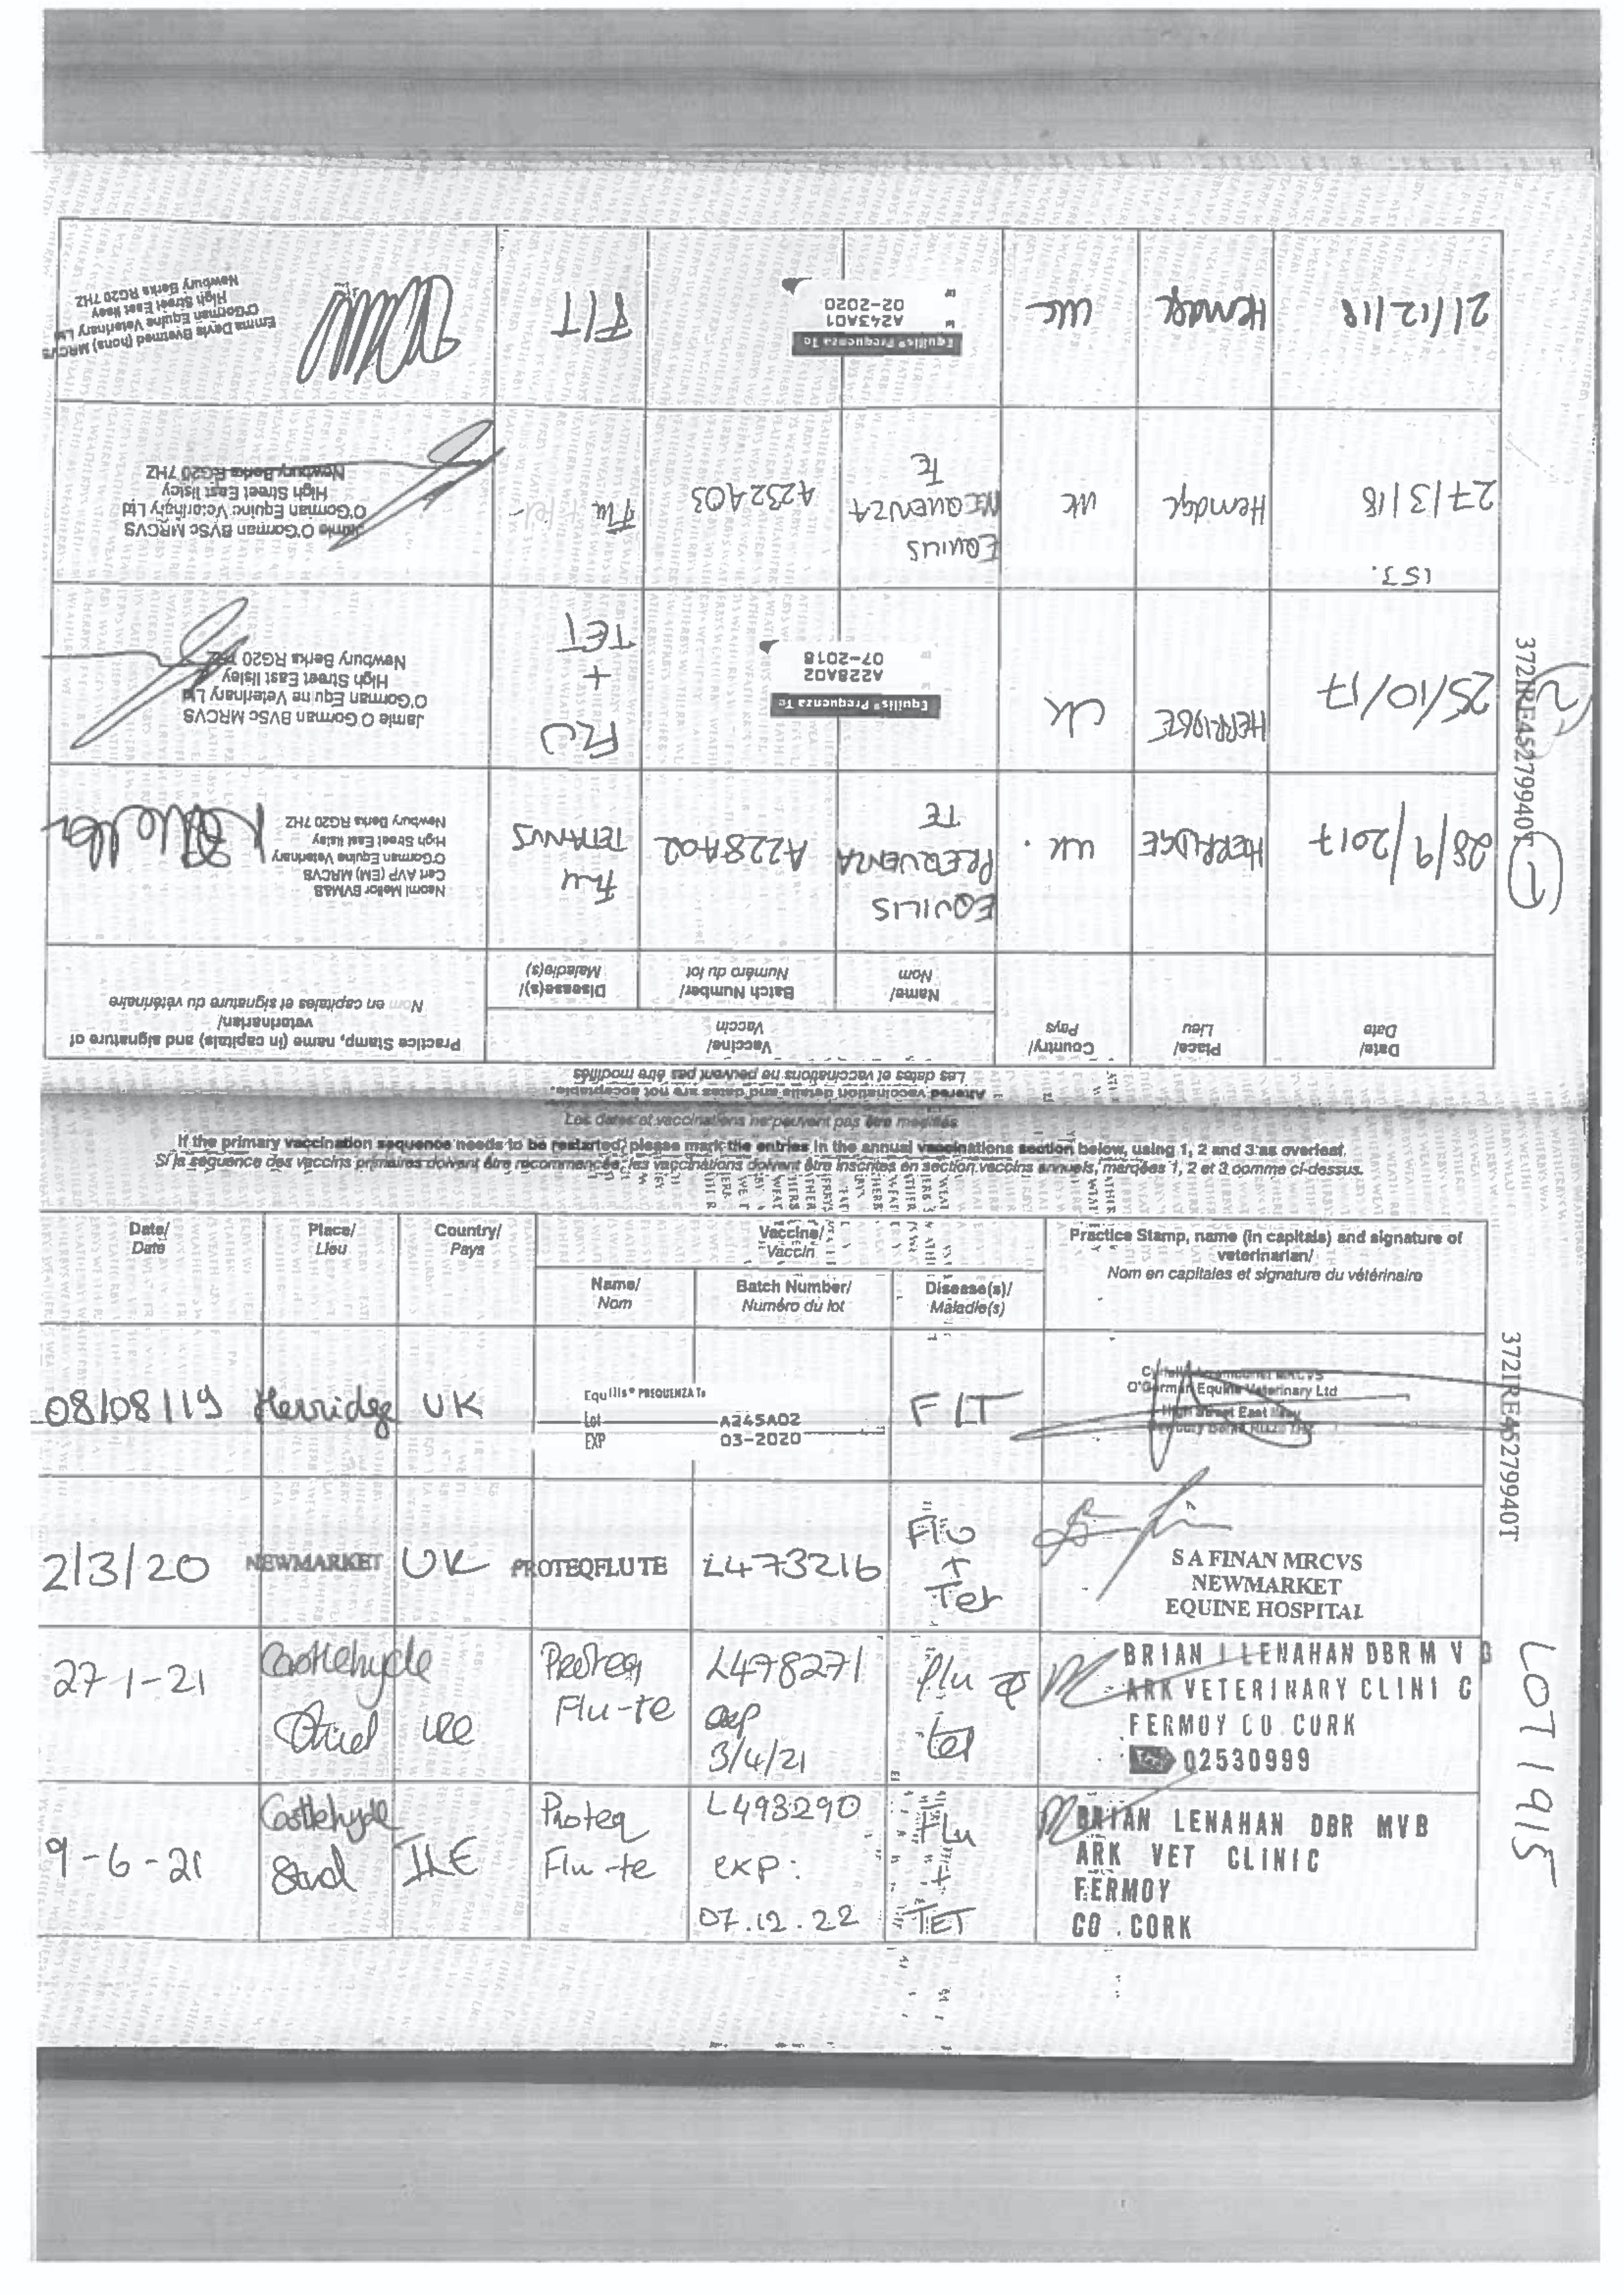 Altered vaccination details and dates are not acceptable.
Les dates et vaccinations ne peuvent pas être modifiés
Date/
Date
Place/
Lieu
Country/
Pays
Vaccine/
Vaccin
Name/
Nom
Batch Number/
Numéro du lot
Disease(s)/
Maladie(s)
Practice Stamp, name (in capitals) and signature of
veterinarian/
Nom en capitales et signature du vétérinaire
1
28/9/2017
HERRIDGE
UK.
EQUILIS
PREQUENZA
TE
A228A02
Flu
TETANUS
Naomi Mellor BVM&S
Cert AVP (EM) MRCVS
O'Gorman Equine Veterinary
High Street East Ilsley
Newbury Berks RG20 7HZ
2
25/10/17
HERRIDGE
UK
Equilis® Prequenza Te
A228A02
07-2018
FLU
+
TET
Jamie O'Gorman BVSc MRCVS
O'Gorman Equine Veterinary Ltd
High Street East Ilsley
Newbury Berks RG20 7HZ
153.
27/3/18
Herridge
UK
EQUILIS
PREQUENZA
TE
A232A03
Flu
Jamie O'Gorman BVSc MRCVS
O'Gorman Equine Veterinary Ltd
High Street East Ilsley
Newbury Berks RG20 7HZ
21/12/18
Herridge
UK
Equilis® Prequenza Te
A243A01
02-2020
F/T
Emma Davis Bvetmed (hons) MRCVS
O'Gorman Equine Veterinary Ltd
High Street East Ilsley
Newbury Berks RG20 7HZ
372IRE45279940T
Les dates et vaccinations ne peuvent pas être modifiés
If the primary vaccination sequence needs to be restarted, please mark the entries in the annual vaccinations section below, using 1, 2 and 3 as overleaf.
Si la séquence des vaccins primaires doivent être recommencée, les vaccinations doivent être inscrites en section vaccins annuels, marqées 1, 2 et 3 comme ci-dessus.
Date/
Date
Place/
Lieu
Country/
Pays
Vaccine/
Vaccin
Name/
Nom
Batch Number/
Numéro du lot
Disease(s)/
Maladie(s)
Practice Stamp, name (in capitals) and signature of
veterinarian/
Nom en capitales et signature du vétérinaire
08/08/19
Herridge
UK
Equilis® PREQUENZA Te
Lot A245A02
EXP 03-2020
F/T
O'Gorman Equine Veterinary Ltd
High Street East Ilsley
2/3/20
NEWMARKET
UK
PROTEQFLUTE
L473216
Flu
+
Tet
S A FINAN MRCVS
NEWMARKET
EQUINE HOSPITAL
27-1-21
Castlehyde
Stud
IRE
Proteq
Flu-te
L478271
exp
3/4/21
Flu &
tet
BRIAN J LENAHAN DBR M V B
ARK VETERINARY CLINI C
FERMOY CO. CORK
02530999
9-6-21
Castlehyde
Stud
IRE
Proteq
Flu-te
L493290
exp:
07.12.22
Flu
+
TET
BRIAN LENAHAN DBR MVB
ARK VET CLINIC
FERMOY
CO. CORK
372IRE45279940T
LOT 1915